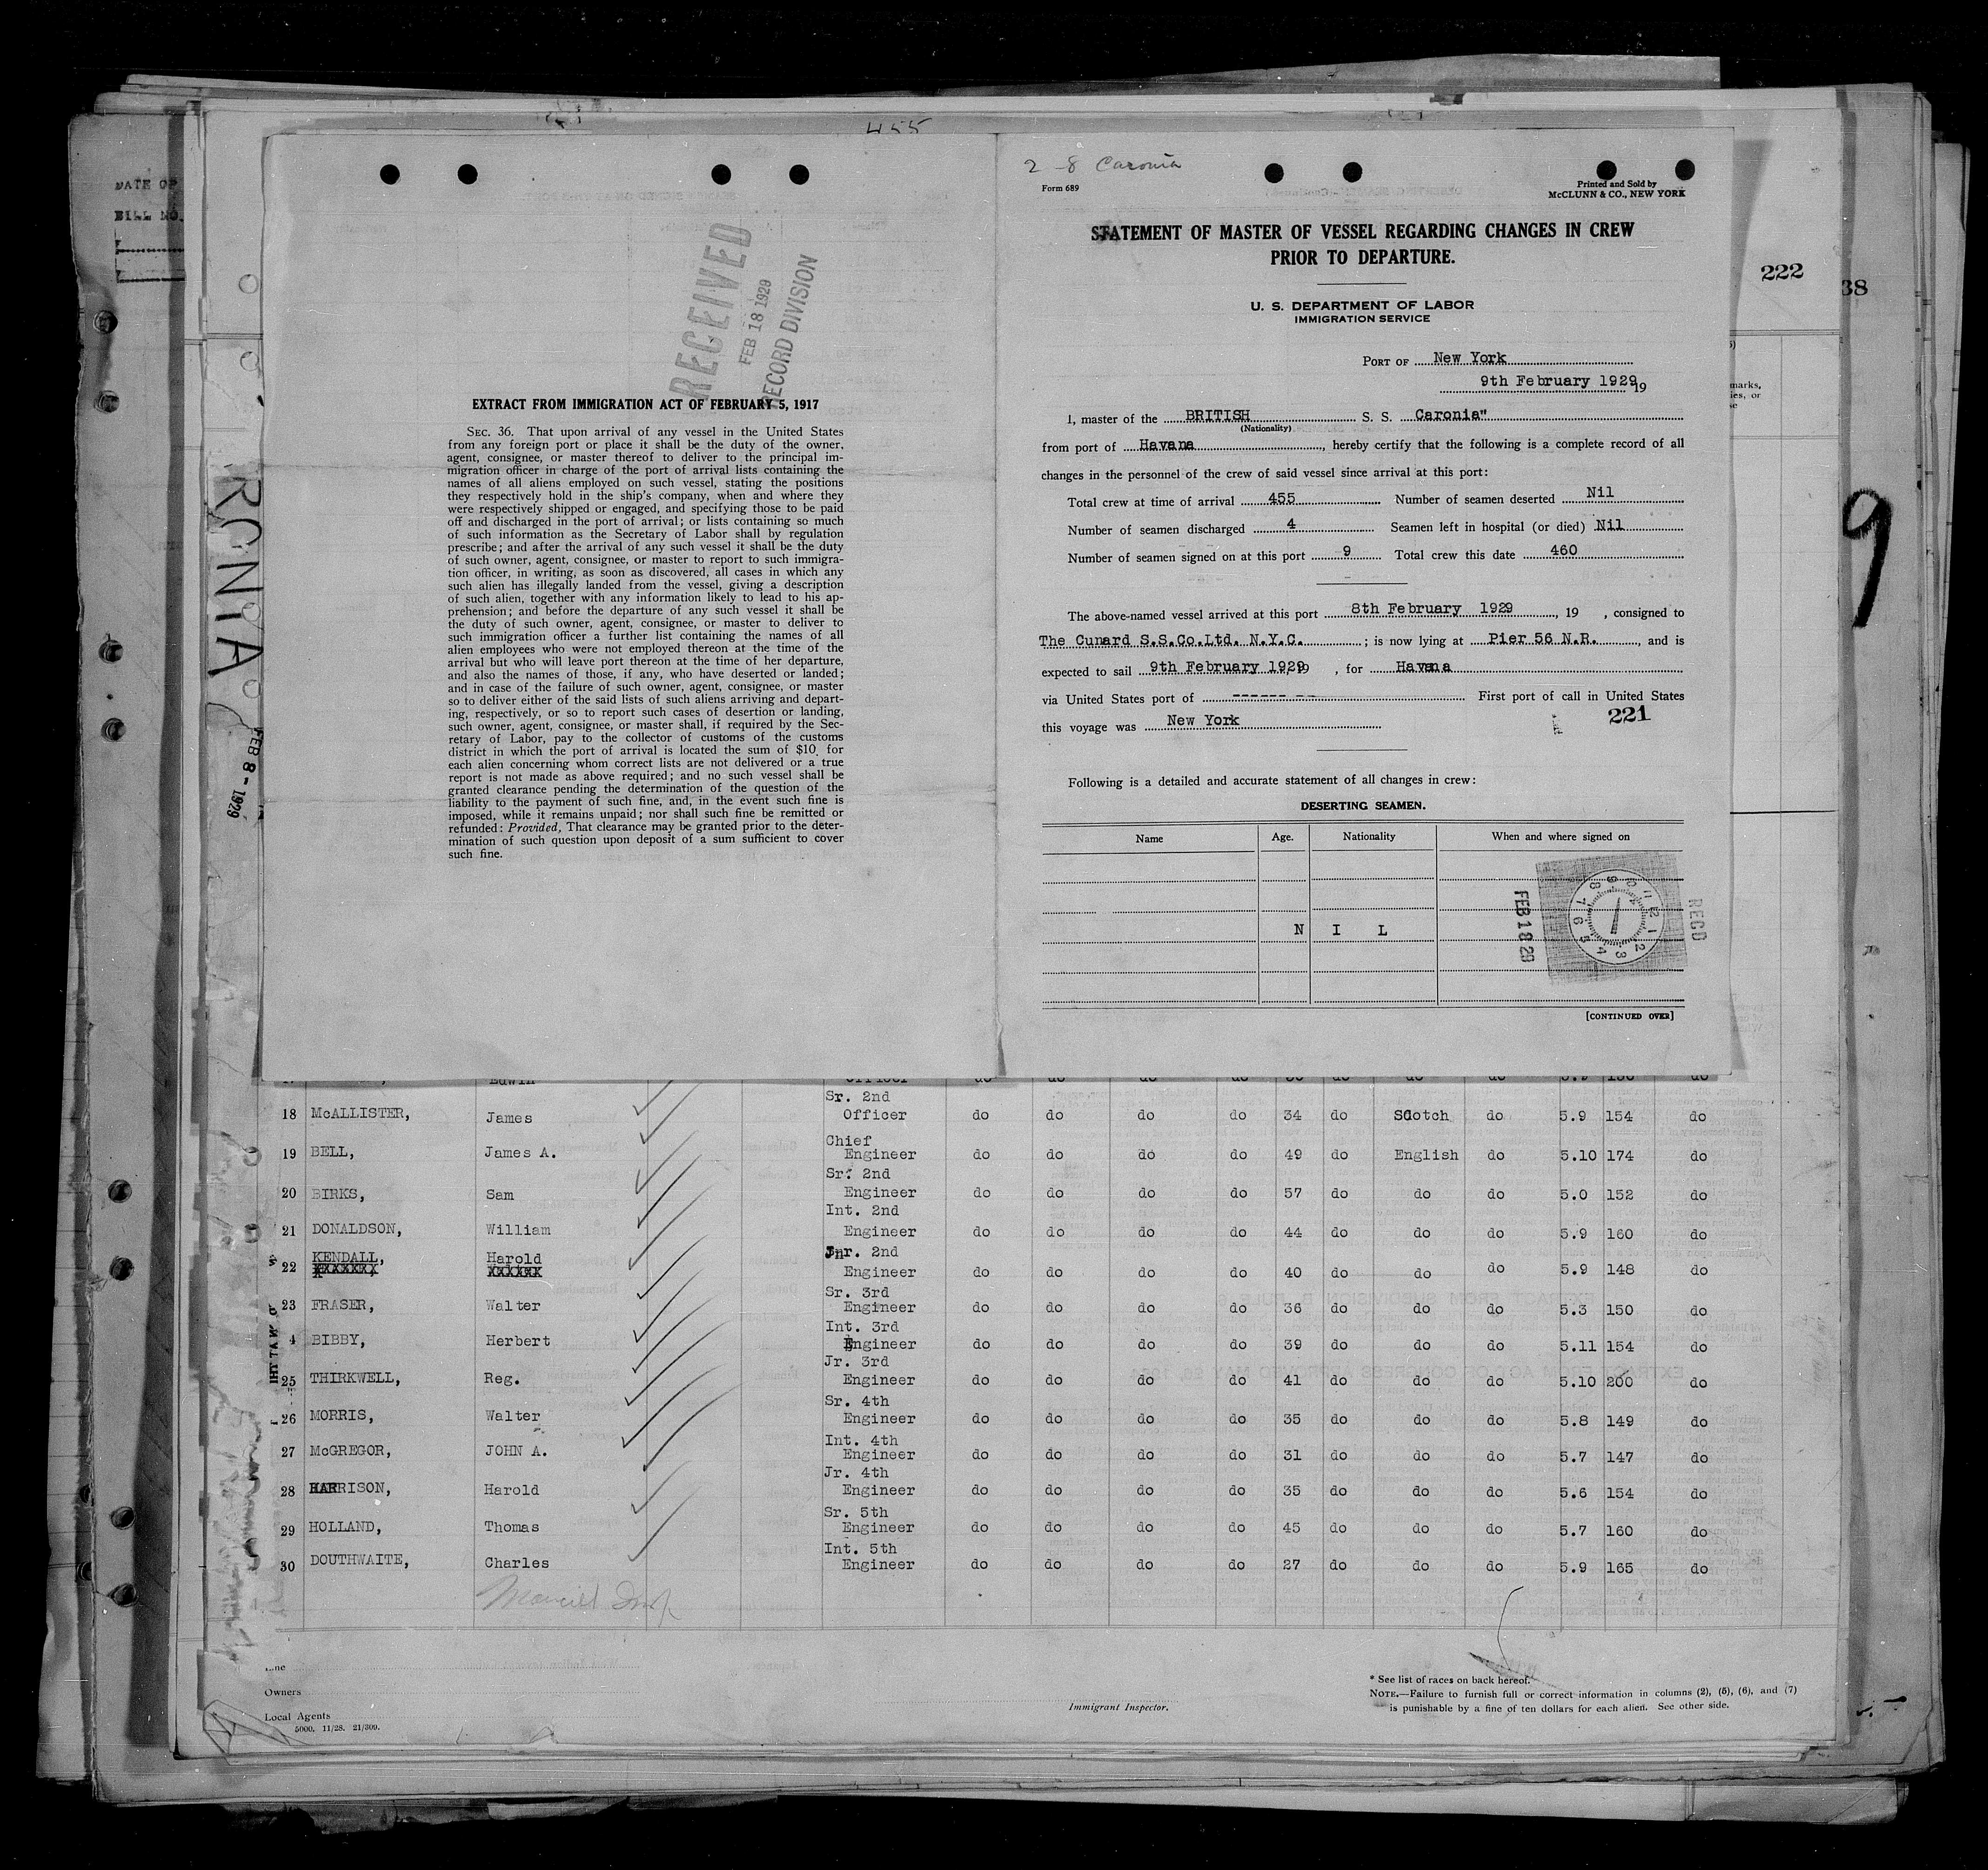 455
DATE OF
BILL NO.
RECEIVED
FEB 18 1929
RECORD DIVISION
EXTRACT FROM IMMIGRATION ACT OF FEBRUARY 5, 1917
SEC. 36. That upon arrival of any vessel in the United States
from any foreign port or place it shall be the duty of the owner,
agent, consignee, or master thereof to deliver to the principal im-
migration officer in charge of the port of arrival lists containing the
names of all aliens employed on such vessel, stating the positions
they respectively hold in the ship's company, when and where they
were respectively shipped or engaged, and specifying those to be paid
off and discharged in the port of arrival; or lists containing so much
of such information as the Secretary of Labor shall by regulation
prescribe; and after the arrival of any such vessel it shall be the duty
of such owner, agent, consignee, or master to report to such immigra-
tion officer, in writing, as soon as discovered, all cases in which any
such alien has illegally landed from the vessel, giving a description
of such alien, together with any information likely to lead to his ap-
prehension; and before the departure of any such vessel it shall be
the duty of such owner, agent, consignee, or master to deliver to
such immigration officer a further list containing the names of all
alien employees who were not employed thereon at the time of the
arrival but who will leave port thereon at the time of her departure,
and also the names of those, if any, who have deserted or landed;
and in case of the failure of such owner, agent, consignee, or master
so to deliver either of the said lists of such aliens arriving and depart-
ing, respectively, or so to report such cases of desertion or landing,
such owner, agent, consignee, or master shall, if required by the Sec-
retary of Labor, pay to the collector of customs of the customs
district in which the port of arrival is located the sum of $10 for
each alien concerning whom correct lists are not delivered or a true
report is not made as above required; and no such vessel shall be
granted clearance pending the determination of the question of the
liability to the payment of such fine, and, in the event such fine is
imposed, while it remains unpaid; nor shall such fine be remitted or
refunded: Provided, That clearance may be granted prior to the deter-
mination of such question upon deposit of a sum sufficient to cover
such fine.
RONIA
FEB 8 - 1929
2 - 8 Caronia
Form 689
Printed and Sold by
McCLUNN & CO., NEW YORK
STATEMENT OF MASTER OF VESSEL REGARDING CHANGES IN CREW
PRIOR TO DEPARTURE.
U. S. DEPARTMENT OF LABOR
IMMIGRATION SERVICE
PORT OF New York
9th February 1929 19
I, master of the BRITISH S. S. Caronia"
(Nationality)
from port of Havana, hereby certify that the following is a complete record of all
changes in the personnel of the crew of said vessel since arrival at this port:
Total crew at time of arrival 455 Number of seamen deserted Nil
Number of seamen discharged 4 Seamen left in hospital (or died) Nil
Number of seamen signed on at this port 9 Total crew this date 460
The above-named vessel arrived at this port 8th February 1929, 19 , consigned to
The Cunard S.S.Co.Ltd. N.Y.C. ; is now lying at Pier 56 N.R., and is
expected to sail 9th February 1929 19 , for Havana
via United States port of ------ -- First port of call in United States
this voyage was New York
221
Following is a detailed and accurate statement of all changes in crew:
DESERTING SEAMEN.
Name Age. Nationality When and where signed on
N I L
FEB 18 29
RECD
[CONTINUED OVER]
222
38
9
marks,
ies, or
Edwin Officer
18 McALLISTER, James Sr. 2nd Officer do do do do 34 do Scotch do 5.9 154 do
19 BELL, James A. Chief Engineer do do do do 49 do English do 5.10 174 do
20 BIRKS, Sam Sr. 2nd Engineer do do do do 57 do do do 5.0 152 do
21 DONALDSON, William Int. 2nd Engineer do do do do 44 do do do 5.9 160 do
22 KENDALL, Harold Jnr. 2nd Engineer do do do do 40 do do do 5.9 148 do
23 FRASER, Walter Sr. 3rd Engineer do do do do 36 do do do 5.3 150 do
4 BIBBY, Herbert Int. 3rd Engineer do do do do 39 do do do 5.11 154 do
25 THIRKWELL, Reg. Jr. 3rd Engineer do do do do 41 do do do 5.10 200 do
26 MORRIS, Walter Sr. 4th Engineer do do do do 35 do do do 5.8 149 do
27 McGREGOR, JOHN A. Int. 4th Engineer do do do do 31 do do do 5.7 147 do
28 HARRISON, Harold Jr. 4th Engineer do do do do 35 do do do 5.6 154 do
29 HOLLAND, Thomas Sr. 5th Engineer do do do do 45 do do do 5.7 160 do
30 DOUTHWAITE, Charles Int. 5th Engineer do do do do 27 do do do 5.9 165 do
Owners
Local Agents
5000. 11/28. 21/309.
Immigrant Inspector.
* See list of races on back hereof.
NOTE.—Failure to furnish full or correct information in columns (2), (5), (6), and (7)
is punishable by a fine of ten dollars for each alien. See other side.